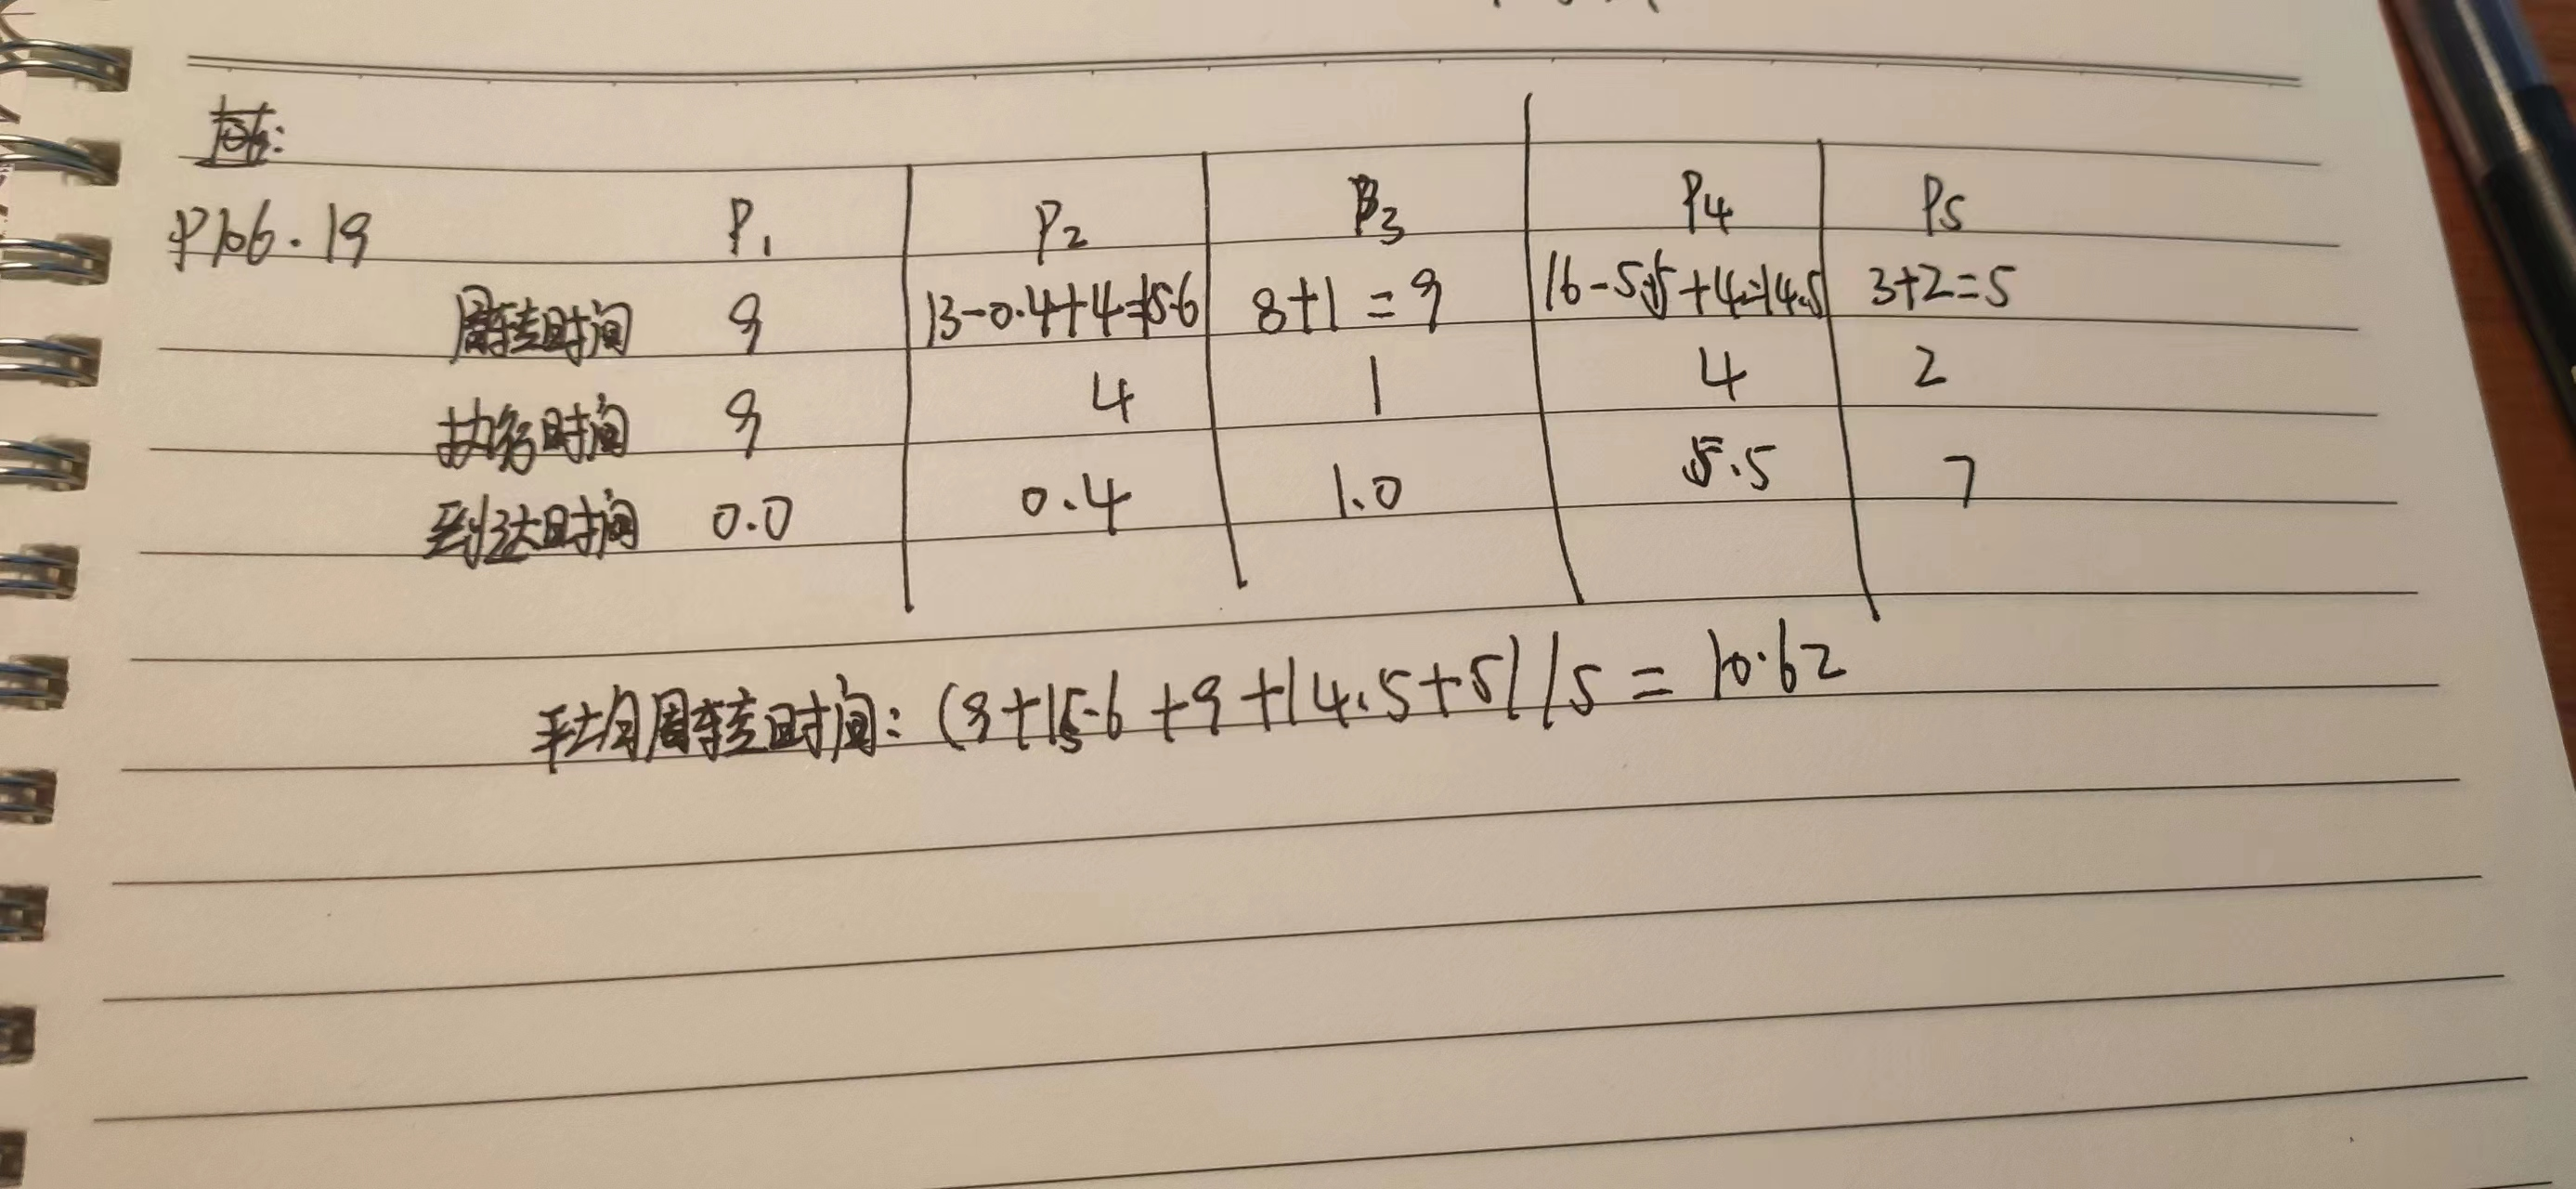 P106.19 P1 P2 P3 P4 P5
周转时间 9 13-0.4+4=15.6 8+1=9 16-5.5+4=14.5 3+2=5
执行时间 9 4 1 4 2
到达时间 0.0 0.4 1.0 5.5 7
平均周转时间: (9+15.6+9+14.5+5)/5=10.62